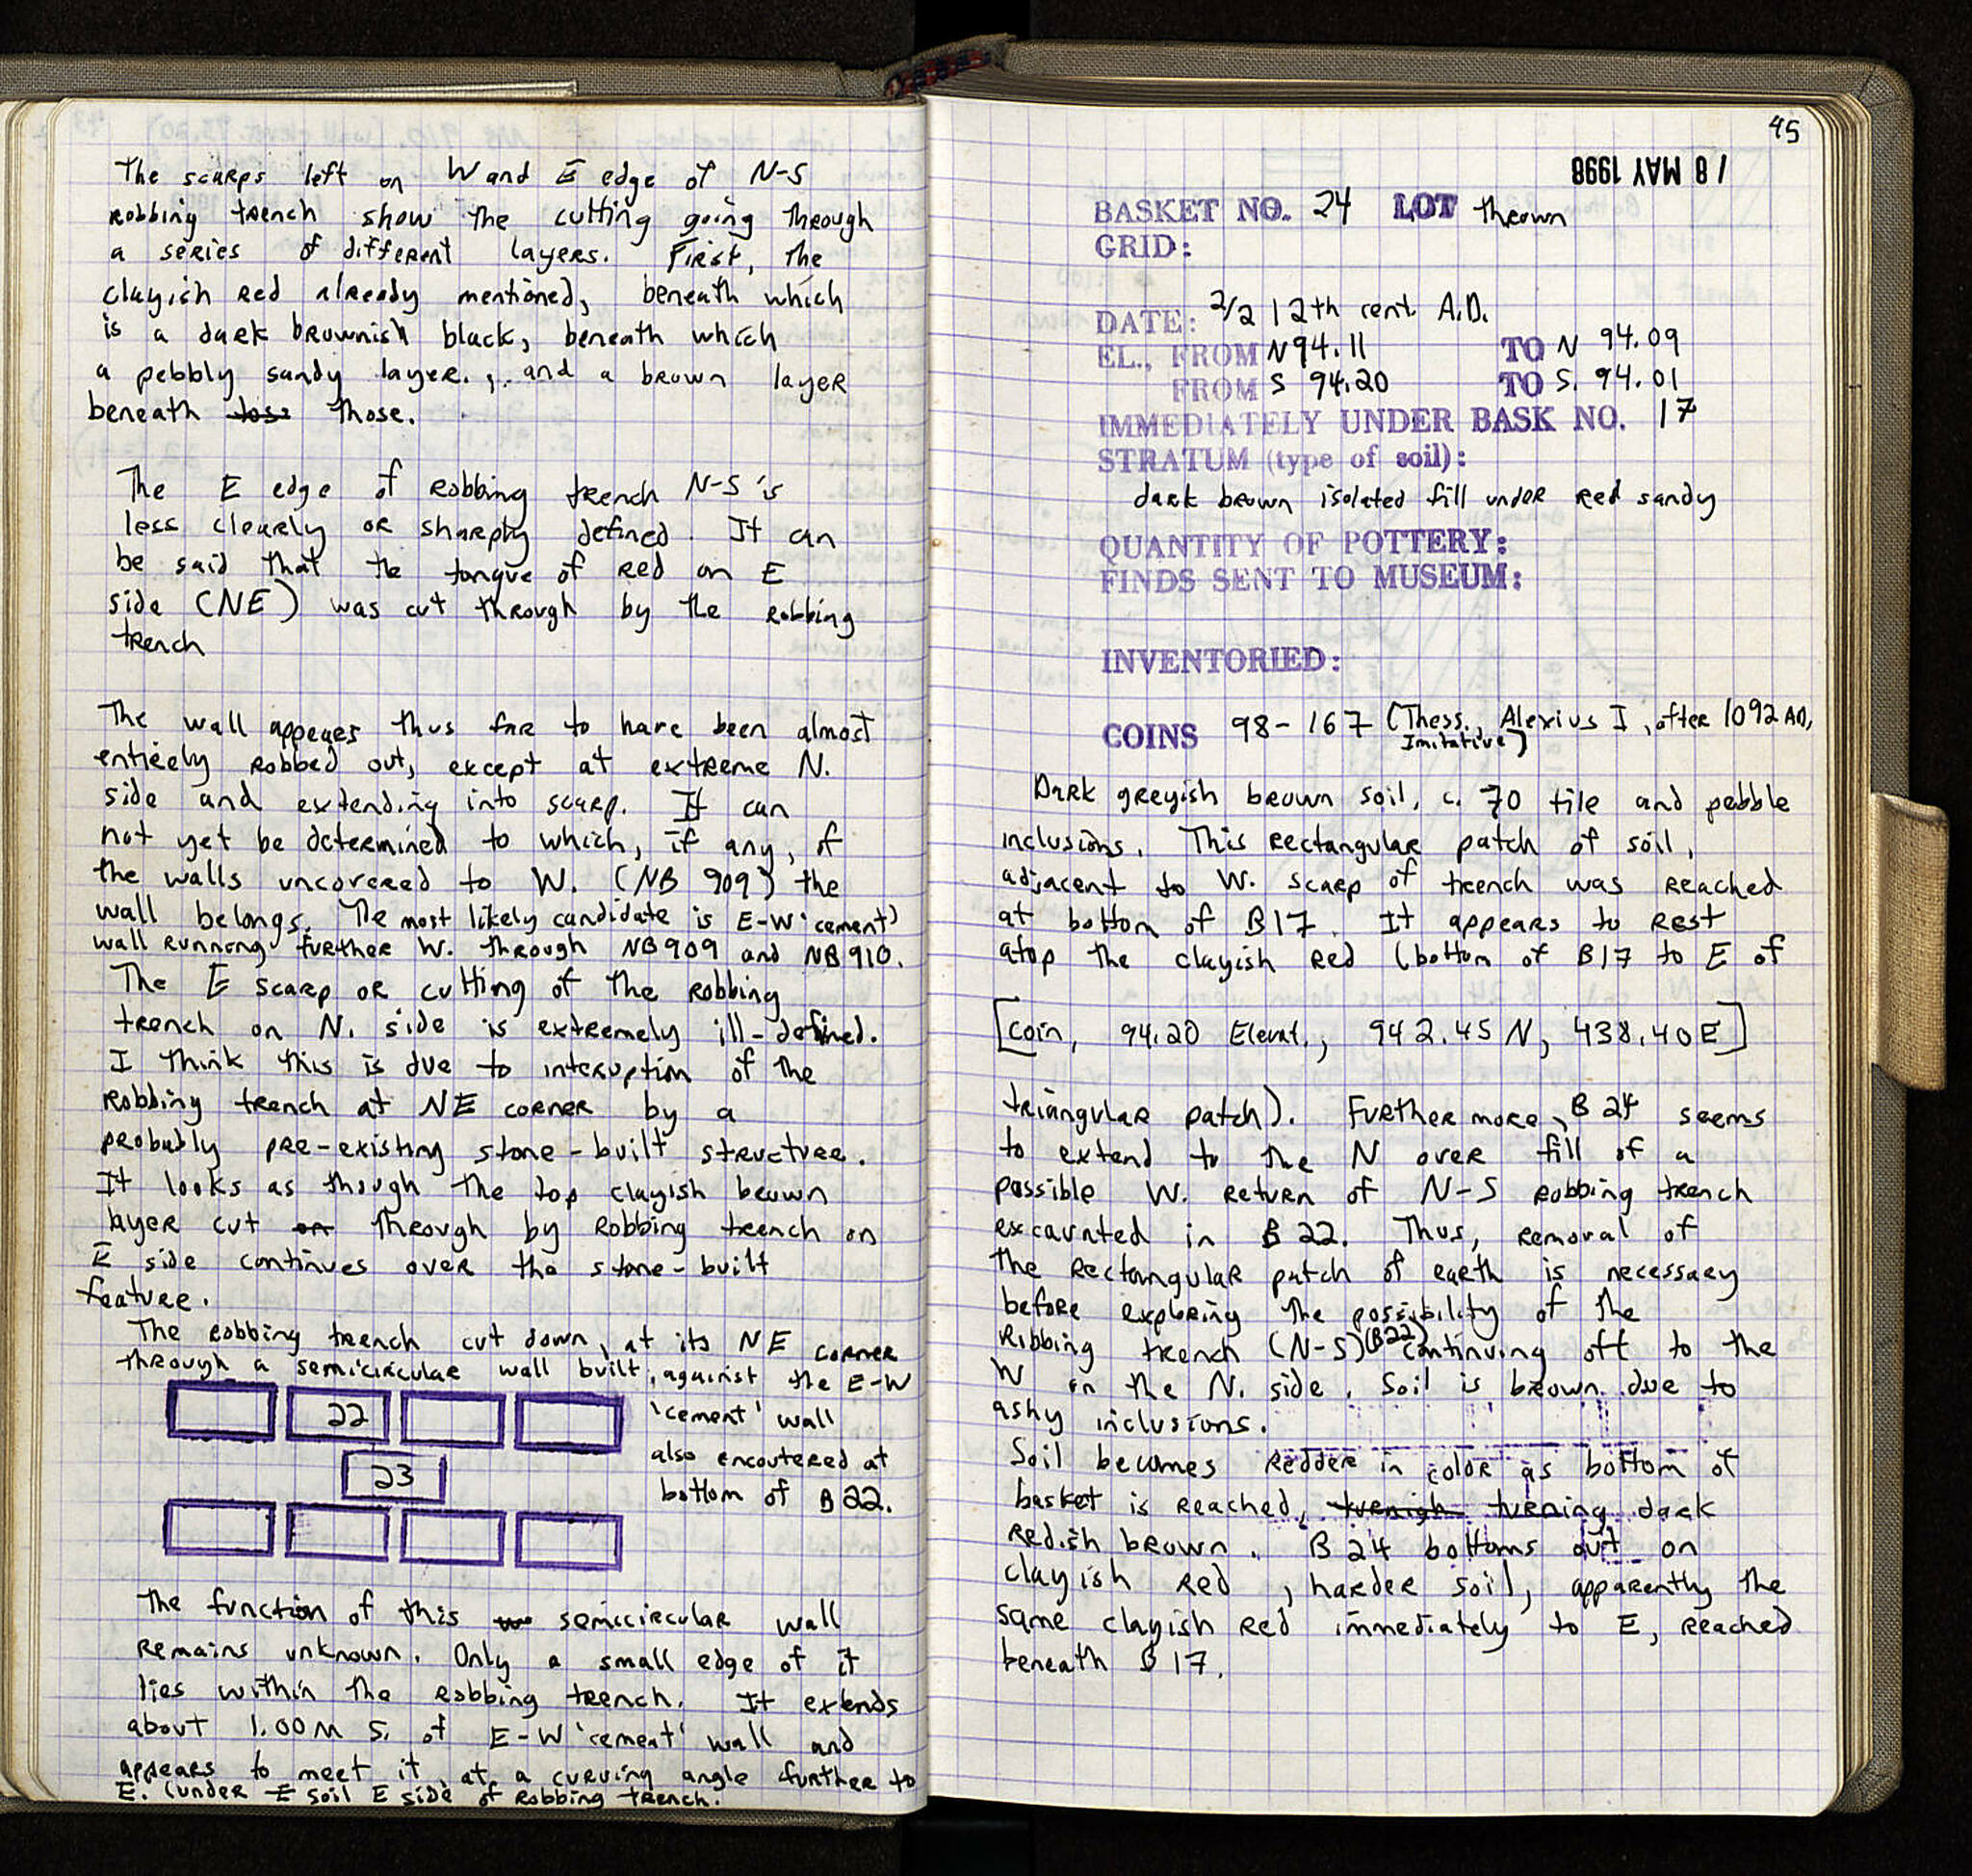 The scarps left on W and E edge of N-S
robbing trench show the cutting going through
a series of different layers. First, the
clayish red already mentioned, beneath which
is a dark brownish black, beneath which
a pebbly sandy layer., and a brown layer
beneath those.
The E edge of robbing trench N-S is
less clearly or sharply defined. It can
be said that the tongue of red on E
side (NE) was cut through by the robbing
trench
The wall appears thus far to have been almost
entirely robbed out, except at extreme N.
side and extending into scarp. It can
not yet be determined to which, if any, of
the walls uncovered to W. (NB 909) the
wall belongs. The most likely candidate is E-W 'cement'
wall running further W. through NB909 and NB910.
The E scarp or cutting of the robbing
trench on N. side is extremely ill-defined.
I think this is due to interuption of the
robbing trench at NE corner by a
probably pre-existing stone-built structure.
It looks as though the top clayish brown
layer cut on through by robbing trench on
E side continues over the stone-built
feature.
The robbing trench cut down, at its NE corner
through a semicircular wall built, against the E-W
22
'cement' wall
also encoutered at
23
bottom of B22.
The function of this semicircular wall
remains unknown. Only a small edge of it
lies within the robbing trench. It extends
about 1.00m S. of E-W 'cement' wall and
appears to meet it at a curving angle further to
E. (under E soil E side of robbing trench.
45
18 MAY 1998
BASKET NO. 24 LOT thrown
GRID:
DATE: 2/2 12th cent. A.D.
EL., FROM N94.11 TO N 94.09
FROM S 94.20 TO S. 94.01
IMMEDIATELY UNDER BASK NO. 17
STRATUM (type of soil):
dark brown isolated fill under red sandy
QUANTITY OF POTTERY:
FINDS SENT TO MUSEUM:
INVENTORIED:
COINS 98-167 (Thess., Alexius I, after 1092 AD,
Imitative)
Dark greyish brown soil, c. 70 tile and pebble
inclusions. This rectangular patch of soil,
adjacent to W. scarp of trench was reached
at bottom of B17. It appears to rest
atop the clayish red (bottom of B17 to E of
[coin, 94.20 Elevat., 942.45 N, 438.40E]
triangular patch). Further more, B 24 seems
to extend to the N over fill of a
possible W. return of N-S robbing trench
excavated in B22. Thus, removal of
the rectangular patch of earth is necessary
before exploring the possibility of the
Ribbing trench (N-S) (B22) continuing off to the
W on the N. side. Soil is brown due to
ashy inclusions.
Soil becomes redder in color as bottom of
basket is reached, turnigh turning dark
redish brown. B 24 bottoms out on
clayish red, harder soil, apparently the
same clayish red immediately to E, reached
beneath B17.